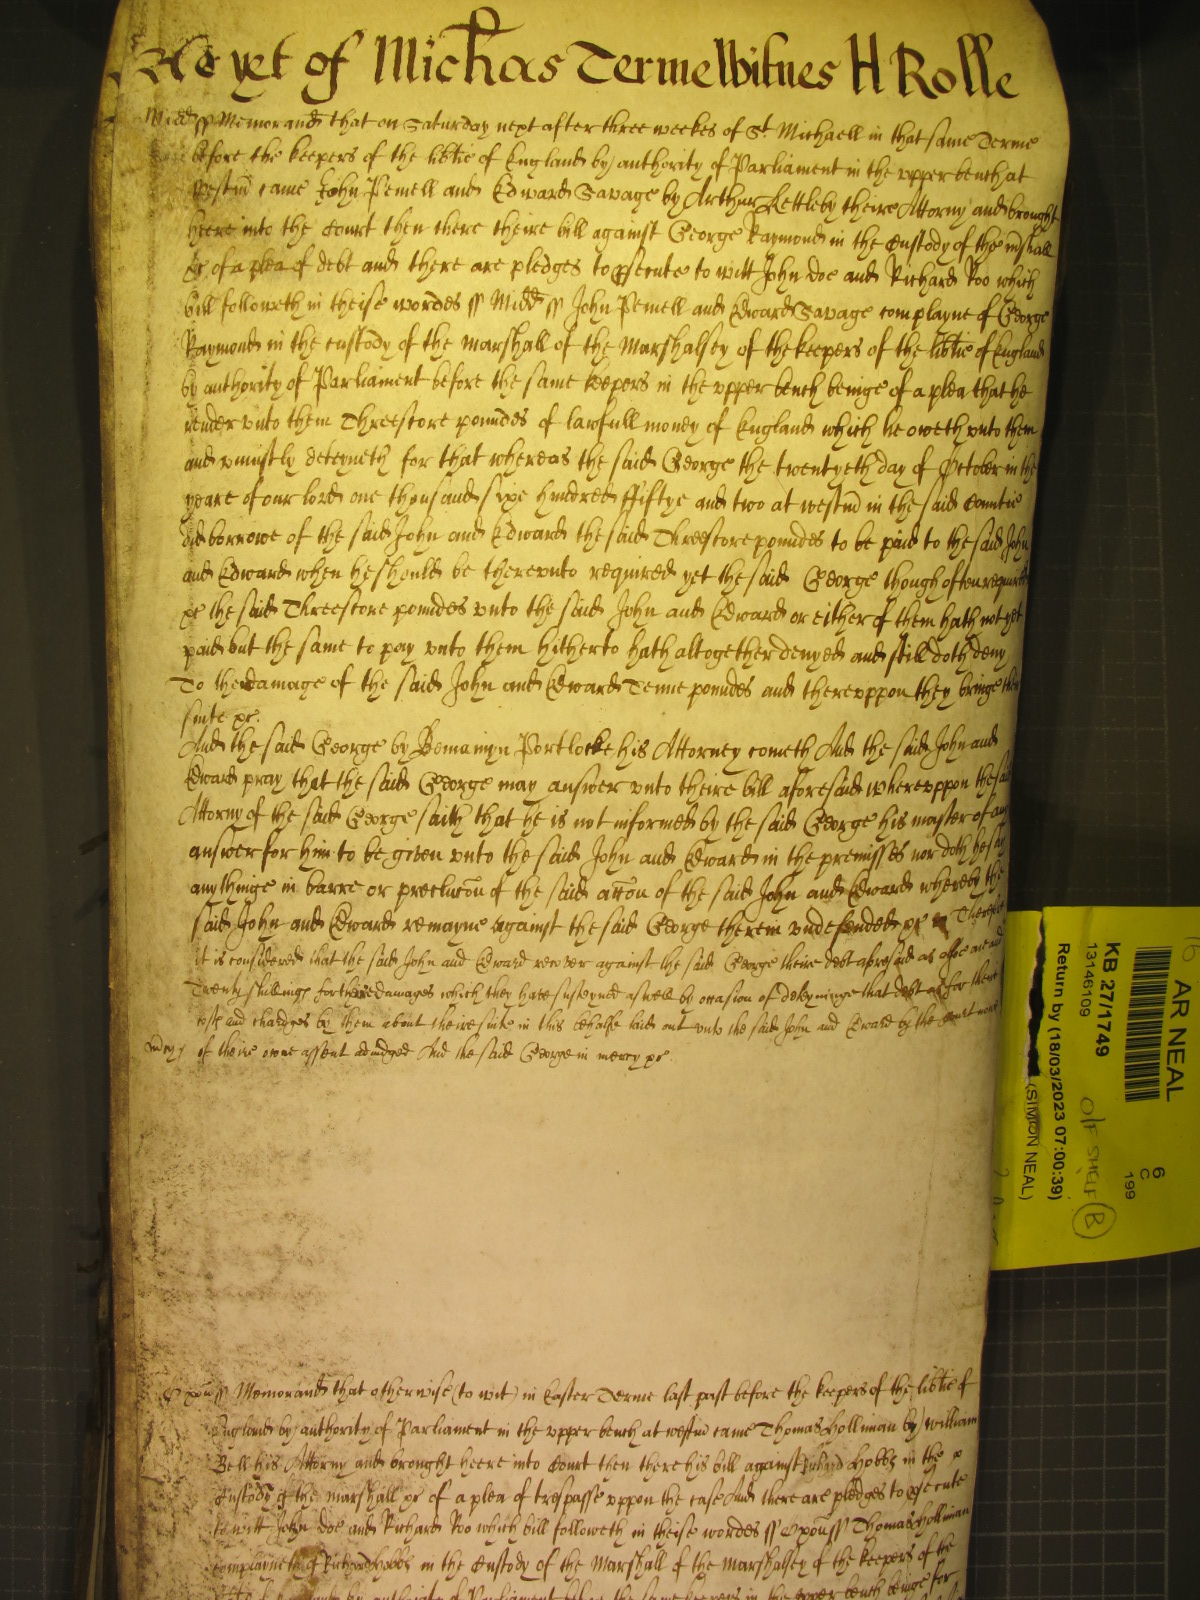 As yet of Michas Terme Witnes H Rolle
Midd ss Memorand that on Saturday next after three weekes of St Michaell in that same Terme
before the keepers of the libtie of England by authority of Parliament in the upper bench at
westm came John Pemell and Edward Savage by Arthur Kettleby theire Attorny and brought
heere into the Court then there theire bill against George Raymond in the Custody of the mshall
&c of a plea of debt and there are pledges to psecute to witt John Doe and Richard Roo which
bill followeth in theise wordes ss Midd ss John Pemell and Edward Savage complayne of George
Raymond in the custody of the marshall of the Marshalsey of the keepers of the libtie of England
by authority of Parliament before the same keepers in the upper bench beinge of a plea that he
render unto them Threescore poundes of lawfull money of England which he oweth unto them
and uniustly deteyneth for that whereas the said George the twentyeth day of October in the
yeare of our lord one thousand sixe hundred ffiftye and two at westm in the said Countie
did borrowe of the said John and Edward the said Threescore poundes to be paid to the said John
and Edward when he should be thereunto required yet the said George though often required
&c the said Threescore poundes unto the said John and Edward or either of them hath not yet
paid but the same to pay unto them hitherto hath altogether denyed and still doth deny
To the damage of the said John and Edward Tenne poundes and thereuppon they bringe their
suite &c.
And the said George by Beniamyn Portlocke his Attorney cometh And the said John and
Edward pray that the said George may answer unto theire bill aforesaid whereuppon the said
Attorny of the said George saith that he is not informed by the said George his master of any
answer for him to be given unto the said John and Edward in the premisses nor doth he say
any thinge in barre or preclucon of the said accon of the said John and Edward whereby the
said John and Edward remayne against the said George therein undefended &c Therefore
it is considered that the said John and Edward recover against the said George theire debt aforesaid as also
Twenty shillings for theire damages which they have susteyned aswell by occasion of deteyninge that debt as for theire
costs and chardges by them about theire suite in this behalfe laid out unto the said John and Edward by the Court
mcy of theire owne assent adiudged And the said George in mercy &c.
ss Memorand that otherwise (to wit) in Easter Terme last past before the keepers of the libtie of
England by authority of Parliament in the upper bench at westm came Thomas Holliman by William
Bell his Attorny and brought heere into Court then there his bill against Richard Hobbs in the
Custody of the marshall &c of a plea of trespasse uppon the case And there are pledges to psecute
to witt John Doe and Richard Roo which bill followeth in theise wordes ss ss Thomas Holliman
complayneth of Richard Hobbs in the Custody of the Marshall of the Marshalsey of the keepers of the
by authority of Parliament before the same keepers in the upper bench beinge for
AR NEAL
KB 27/1749
13146109
Return by (18/03/2023 07:00:39)
(SIMON NEAL)
6
C
199
O/F SHELF B